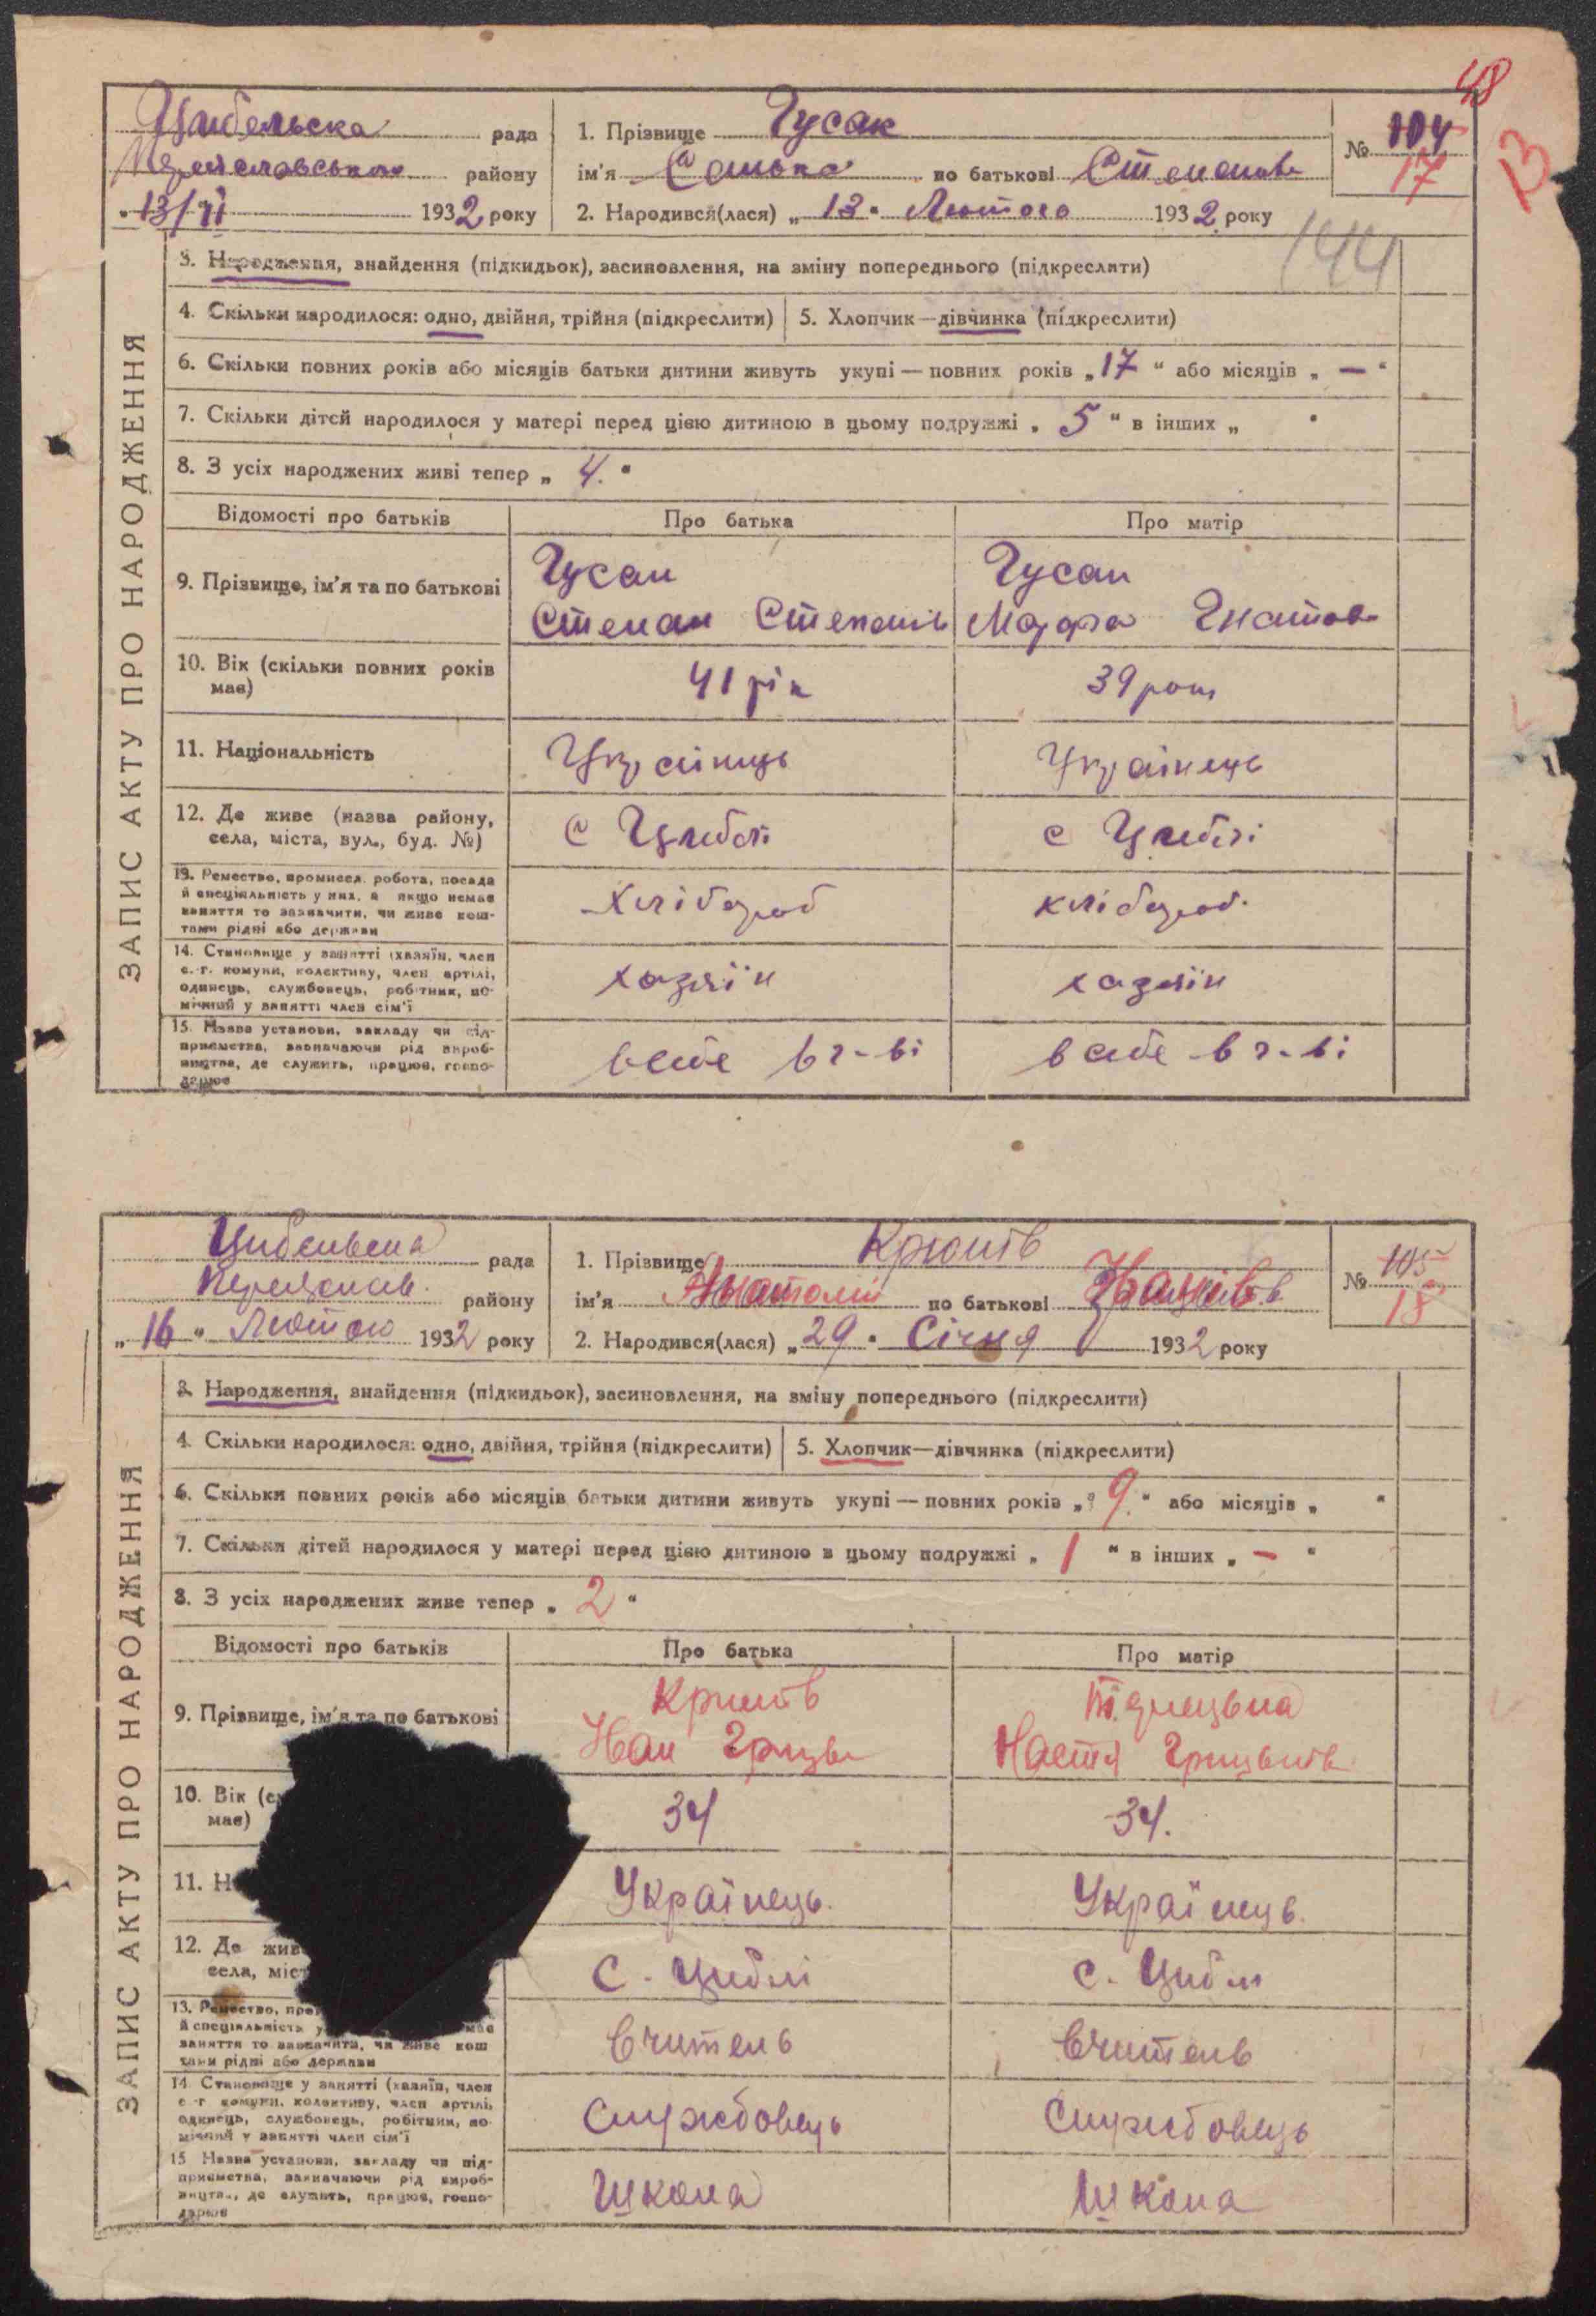 48
13
Цибельска рада
Переяславського району
„13/II 1932 року
1. Прізвище Гусак
ім'я Санька по батькові Степанов
2. Народився(лася) „13" Лютого 1932 року
№ 104
17
144
ЗАПИС АКТУ ПРО НАРОДЖЕННЯ
3. Народження, знайдення (підкидьок), засиновлення, на зміну попереднього (підкреслити)
4. Скільки народилося: одно, двійня, трійня (підкреслити) 5. Хлопчик—дівчинка (підкреслити)
6. Скільки повних років або місяців батьки дитини живуть укупі — повних років „17" або місяців „—"
7. Скільки дітей народилося у матері перед цією дитиною в цьому подружжі „5" в інших „ "
8. З усіх народжених живі тепер „4."
Відомості про батьків Про батька Про матір
9. Прізвище, ім'я та по батькові
Гусак Гусак
Степан Степанів Марфа Гнатов
10. Вік (скільки повних років має) 41 рік 39 рок
11. Національність Українець Українець
12. Де живе (назва району, села, міста, вул., буд. №) с Циблі с Циблі
13. Ремество, промисел, робота, посада
й спеціяльність у них, а якщо немає
заняття то зазначити, чи живе кош-
тами рідні або держави
хлібороб хлібороб.
14. Становище у занятті (хазяїн, член
с.-г. комуни, колективу, член артілі,
одинець, службовець, робітник, по-
мічний у занятті член сім'ї
хазяїн хазяїн
15. Назва установи, закладу чи під-
приємства, зазначаючи рід вироб-
ництва, де служить, працює, госпо-
дарює
в себе в г-ві в себе в г-ві
Цибельска рада
Переяслав. району
„16" Лютого 1932 року
1. Прізвище
ім'я Анатолій по батькові
2. Народився(лася) „29" Січня 1932 року
№ 105
18
ЗАПИС АКТУ ПРО НАРОДЖЕННЯ
3. Народження, знайдення (підкидьок), засиновлення, на зміну попереднього (підкреслити)
4. Скільки народилося: одно, двійня, трійня (підкреслити) 5. Хлопчик—дівчинка (підкреслити)
6. Скільки повних років або місяців батьки дитини живуть укупі — повних років „9." або місяців „ "
7. Скільки дітей народилося у матері перед цією дитиною в цьому подружжі „1" в інших „—"
8. З усіх народжених живе тепер „2"
Відомості про батьків Про батька Про матір
9. Прізвище, ім'я та по батькові
Настя
10. Вік
має) 34 34.
11. Н Українець. Українець.
12. Де жив
села, міст с. Циблі с. Циблі
13. Ремество, про
й спеціяльність у має
заняття то зазначити, чи живе кош
тами рідні або держави
Вчитель Вчитель
14. Становище у занятті (хазяїн, член
с.-г комуни, колективу, член артілі,
одинець, службовець, робітник, по-
мічний у занятті член сім'ї
Службовець Службовець
15 Назва установи, закладу чи під-
приємства, зазначаючи рід вироб-
ництва, де служить, працює, госпо-
дарює
Школа Школа